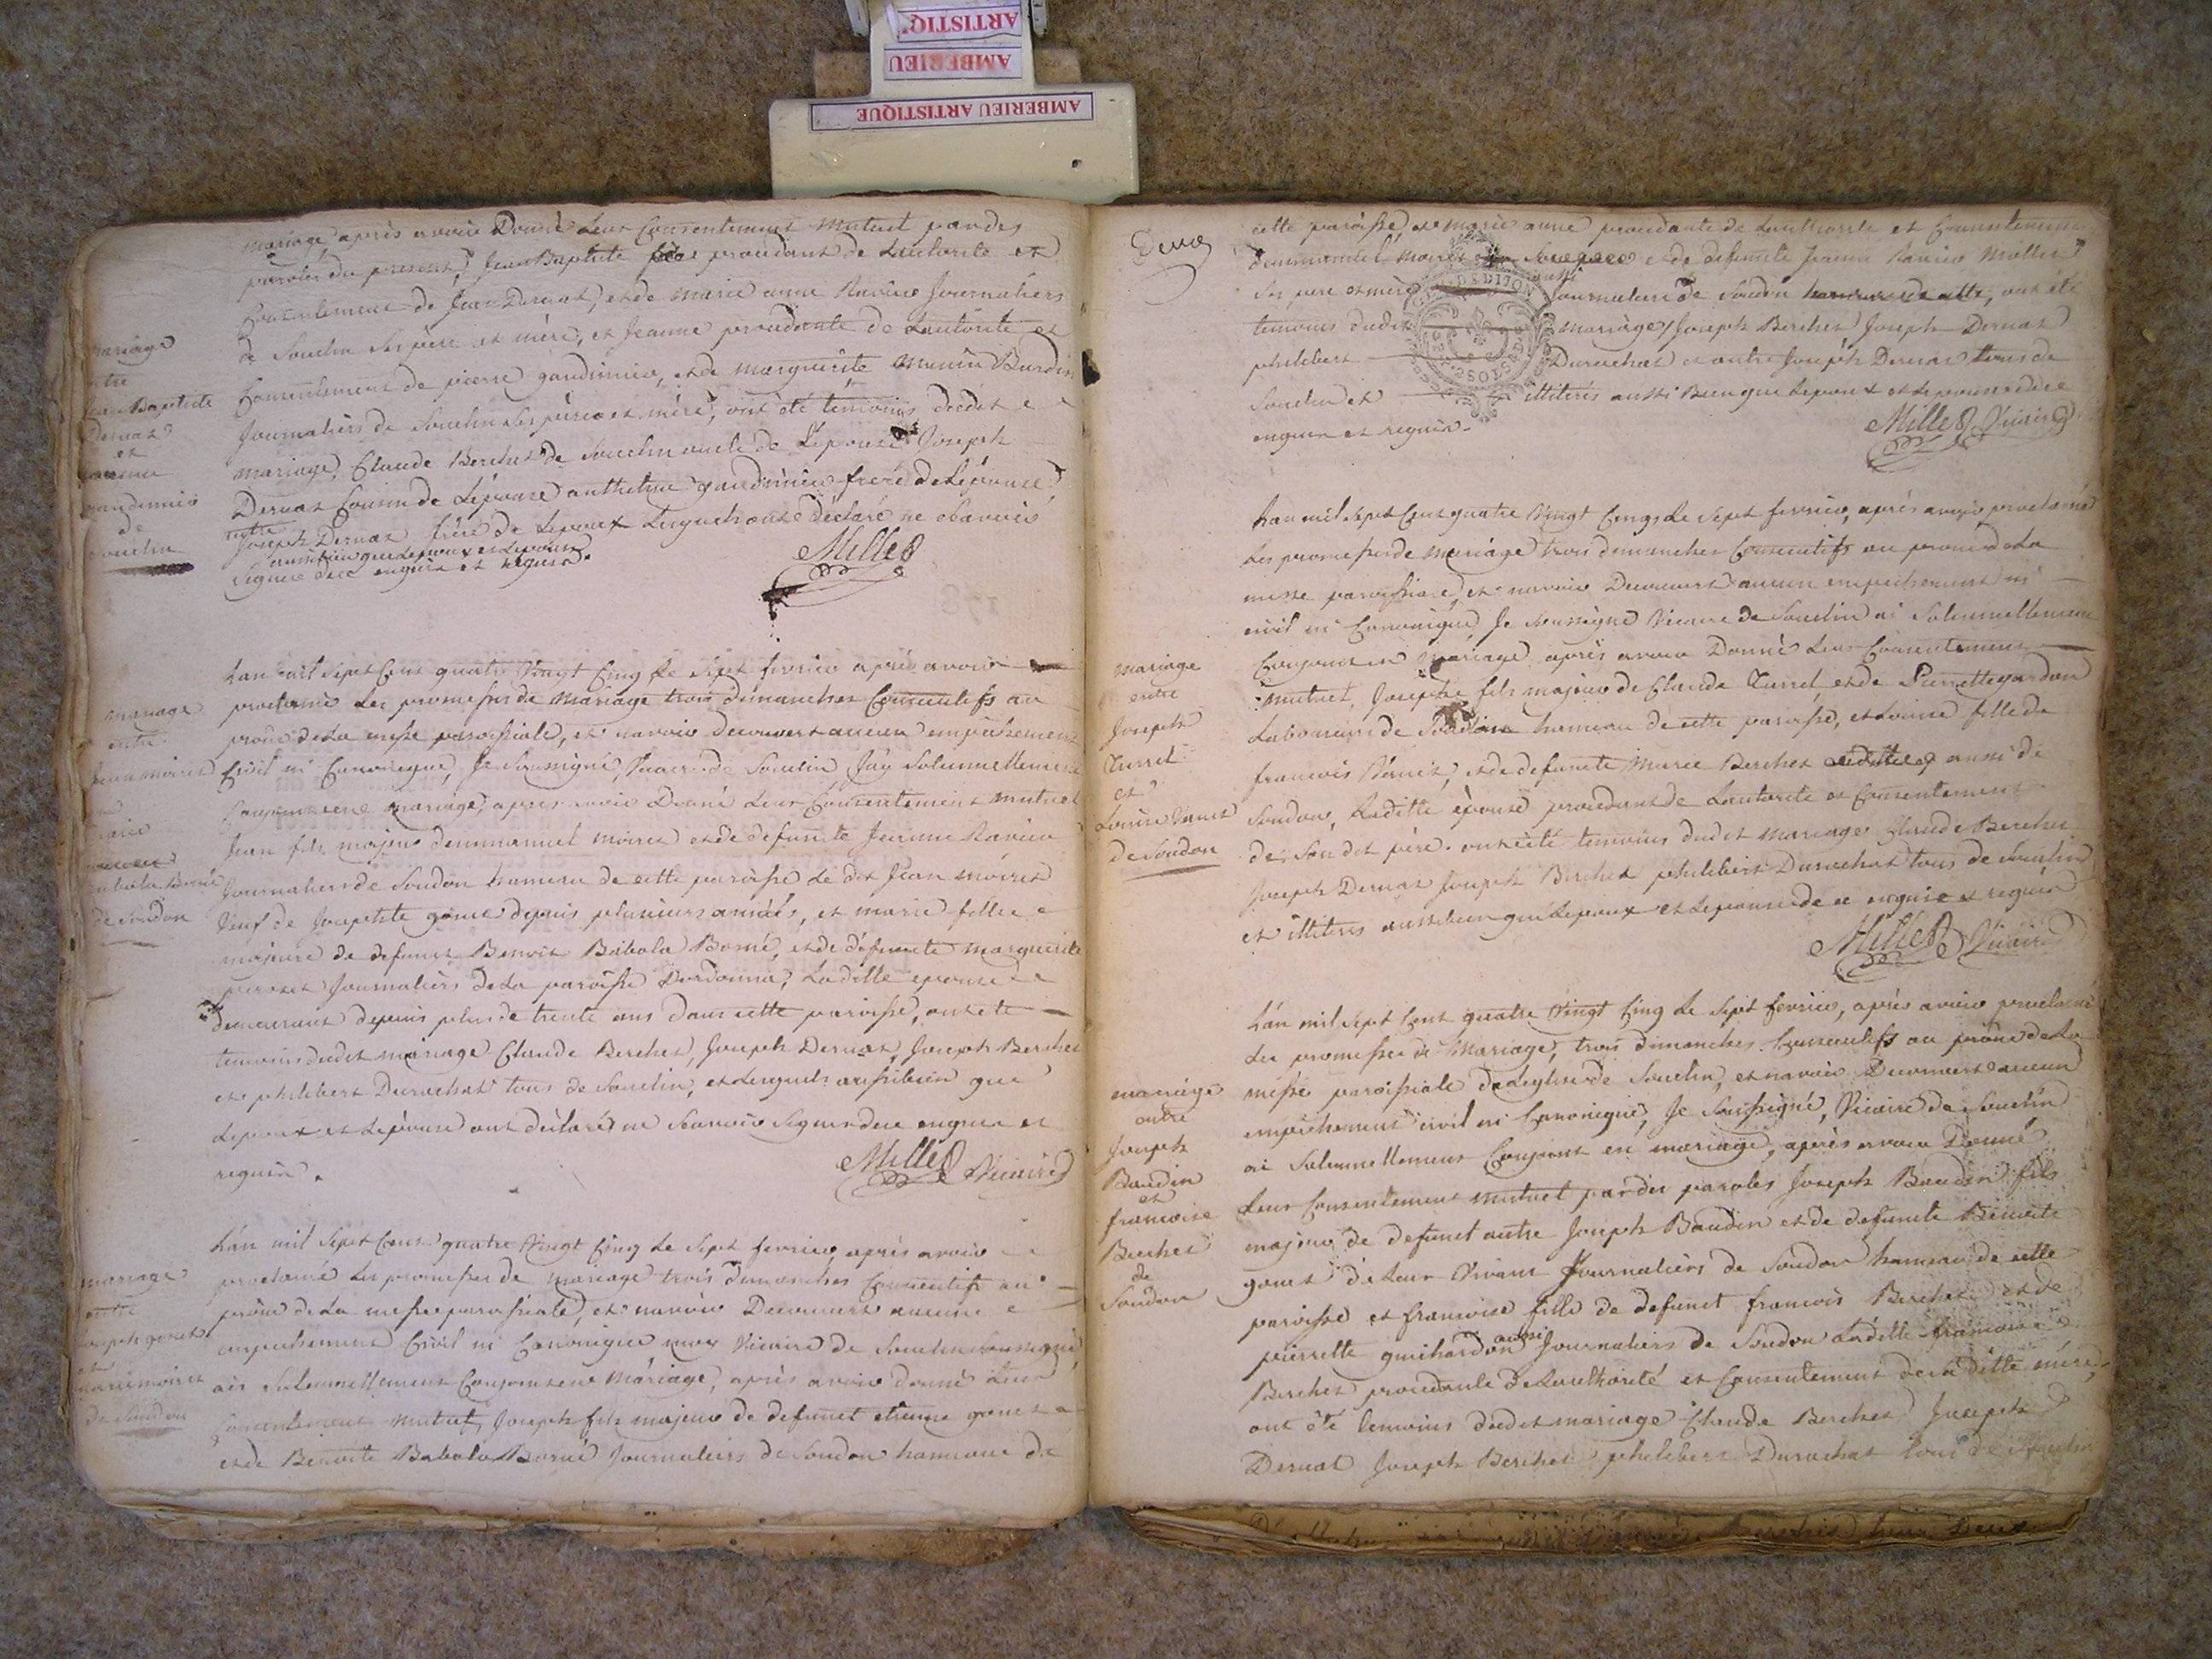 ARTISTIQ
AMBERIEU
AMBERIEU ARTISTIQUE
mariage après avoir Donné Leur Consentement mutuel par des
paroles du present, Jean Baptiste procedant de Lautorité et
Consentement de Jean Dernat, et de marie anne Journaliers
de Souclin Ses père et mère, et Jeanne procedante de Lautorité et
Consentement de pierre et de marguerite
Journaliers de Souclin Ses père et mère, ont été témoins dudit
mariage, Claude Berchet de Souclin oncle de Lepouse Joseph
Dernat Cousin de Lépouse anthelme frère de Lépouse
autre Joseph Dernat frère de Lepoux Lesquels ont déclaré ne
aussi bien que Lepoux et Lepouse
Signer de ce enquis et requis.
Millet
mariage
Baptiste
Dernat
et
de
Souclin
Lan mil Sept Cent quatre Vingt Cinq Le Sept fevrier après avoir
proclamé Les promesses de Mariage trois dimanches Consecutifs au
prône de La messe paroissiale, et navoir decouvert aucun empechement
Civil ni Canonique, Je Soussigné, Vicaire de Souclin Jay Solennellement
Conjoint en mariage, après avoir Donné Leur Consentement mutuel
Jean fils majeur demmanuel moiret et de defunte Jeanne Ravier
Journaliers de Soudon hameau de cette paroisse Le dit Jean moiret
Veuf de Josephte gonet depuis plusieurs années, et marie fille
majeure de defunt Benoit Babola Borné, et de défunte marguerite
Journaliers de La paroisse Dordonna, Ladille epouse
demeurant depuis plus de trente ans dans cette paroisse, ont été
temoins dudit mariage Claude Berchet, Joseph Dernat, Joseph Berchet
et philibert Durochat tous de Souclin, et Lesquels aussibien que
Lepoux et Lépouse ont déclaré ne Scavoir Signer de ce enquis et
requis.
Millet Vicaire
mariage
entre
Jean moiret
marie
babola Borné
de Soudon
Lan mil Sept Cent quatre Vingt Cinq Le Sept fevrier, après avoir
proclamé Les promesses de Mariage trois dimanches Consecutifs au
prône de La messe paroissiale, et navoir Decouvert aucun
empechement Civil ni Canonique moy Vicaire de Souclin Soussigné
ais Solennellement Conjoint en Mariage, après avoir donné Leur
Consentement mutuel, Joseph fils majeur de defunt etienne gonet
et de Benoite Babola Borné Journaliers de Soudon hameau de
mariage
entre
Joseph gonet
et
marie moiret
de Soudon
cette paroisse, et marie anne procedante de Lauthorité et Consentement
demmanuel moiret et de defunte Jeanne Ravier
Ses pere et mère aussi Journaliers de Soudon ont été
temoins dudit mariage, Joseph Berchet Joseph Dernat
philibert Durochat et autre Joseph Dernat tous de
Souclin et illiterés aussi Bien que Lepoux et Lepouse de ce
enquis et requis.
Millet Vicaire
Lan mil Sept Cent quatre Vingt Cinq Le Sept fevrier, après avoir proclamé
Les promesses de Mariage trois dimanches Consecutifs au prone de La
messe paroissiale, et navoir Decouvert aucun empechement ni
civil ni Canonique, Je Soussigné Vicaire de Souclin ai Solennellement
Conjoint en Mariage après avoir Donné Leur Consentement
mutuel, Joseph fils majeur de Claude Turrel, et de
Laboureurs de Soudon hameau de cette paroisse, et Louise fille de
francois et de defunte Marie Berchet aussi de
Soudon, Laditte épouse procedant de Lautorité et Consentement
de Son dit père. ont été temoins dudit mariage Claude Berchet
Joseph Dernat Joseph Berchet philibert Durochat tous de Souclin
et illiterés aussibien que Lepoux et Lepouse de ce enquis et requis
Millet Vicaire
mariage
entre
Joseph
Turrel
et
Louise
de Soudon
Lan mil Sept Cent quatre Vingt Cinq Le Sept fevrier, après avoir proclamé
Les promesses de Mariage, trois dimanches Consecutifs au prône de La
messe paroissiale de Leglise de Souclin, et navoir Decouvert aucun
empechement civil ni Canonique, Je Soussigné, Vicaire de Souclin
ai Solennellement Conjoint en mariage, après avoir Donné
Leur Consentement mutuel par des paroles Joseph Baudin fils
majeur de defunt autre Joseph Baudin et de defunte Benoite
gonet de Leur Vivant Journaliers de Soudon hameau de cette
paroisse et francoise fille de defunt francois Berchet et de
pierrette guichardon aussi Journaliers de Soudon Laditte francoise
Berchet procedante de Lauthorité et Consentement de sa ditte mére,
ont été temoins dudit mariage Claude Berchet Joseph
Dernat Joseph Berchet philibert Durochat tous de Souclin
mariage
entre
Joseph
Baudin
et
francoise
Berchet
de
Soudon